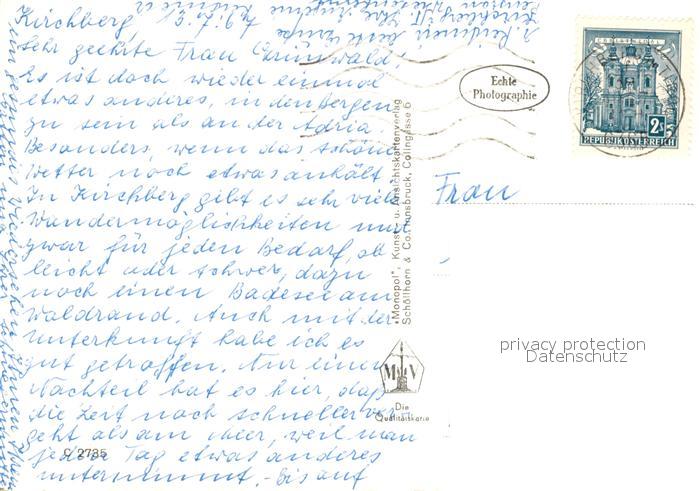 Kirchberg, 13.7.67
Sehr geehrte Frau Grünwald!
Es ist doch wieder einmal
etwas anderes, in den Bergen
zu sein als an der Adria.
Besonders, wenn das schöne
Wetter noch etwas anhält.
In Kirchberg gibt es sehr viele
Wandermöglichkeiten und
zwar für jeden Bedarf, ob
leicht oder schwer, dazu
noch einen Badesee am
Waldrand. Auch mit der
Unterkunft habe ich es
gut getroffen. Nur einen
Nachteil hat es hier, daß
die Zeit noch schneller ver-
geht als am Meer, weil man
jeden Tag etwas anderes
unternimmt. Bis auf
Frau
Echte
Photographie
REPUBLIK ÖSTERREICH
"Monopol", Kunst- u. Ansichtskartenverlag
Schöllhorn & Co. Innsbruck, Colingasse 6
M V
Die
Qualitätskarte
C 2735
privacy protection
Datenschutz